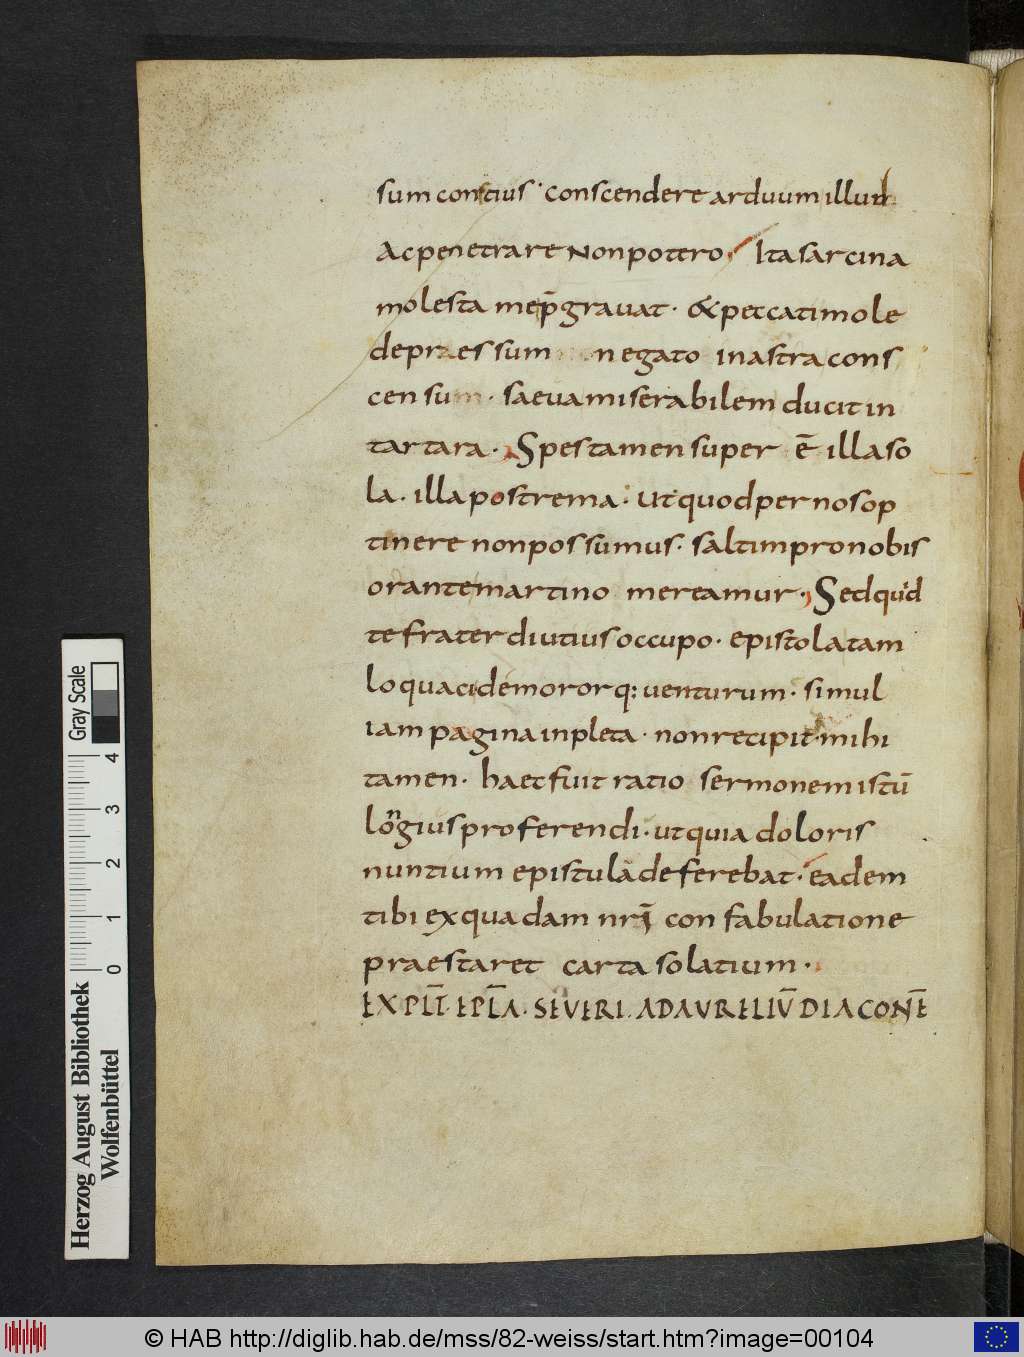 sum conscius · conscendere arduum illud
Ac penetrare non potero, Ita sarcina
molesta me p̄gravat · & peccati mole
depraessum negato in astra cons
censum · saeva miserabilem ducit in
tartara · Spes tamen super ē illa so
la · illa postrema · ut quod per nos op
tinere non possumus · saltim pro nobis
orante martino mereamur · Sed quid
te frater diutius occupo · epistola tam
loquaci demororq: venturum · simul
iam pagina inpleta · non recipit mihi
tamen · haec fuit ratio sermonem istū
lōngius proferendi · ut quia doloris
nuntium epistulā deferebat · eadem
tibi ex quadam nrī confabulatione
praestaret carta solatium ·
EXPLĪT · EPL̄A · SEVERI · AD AVRELIŪ DIACONĒ
Herzog August Bibliothek
Wolfenbüttel
Gray Scale
0 1 2 3 4
© HAB http://diglib.hab.de/mss/82-weiss/start.htm?image=00104